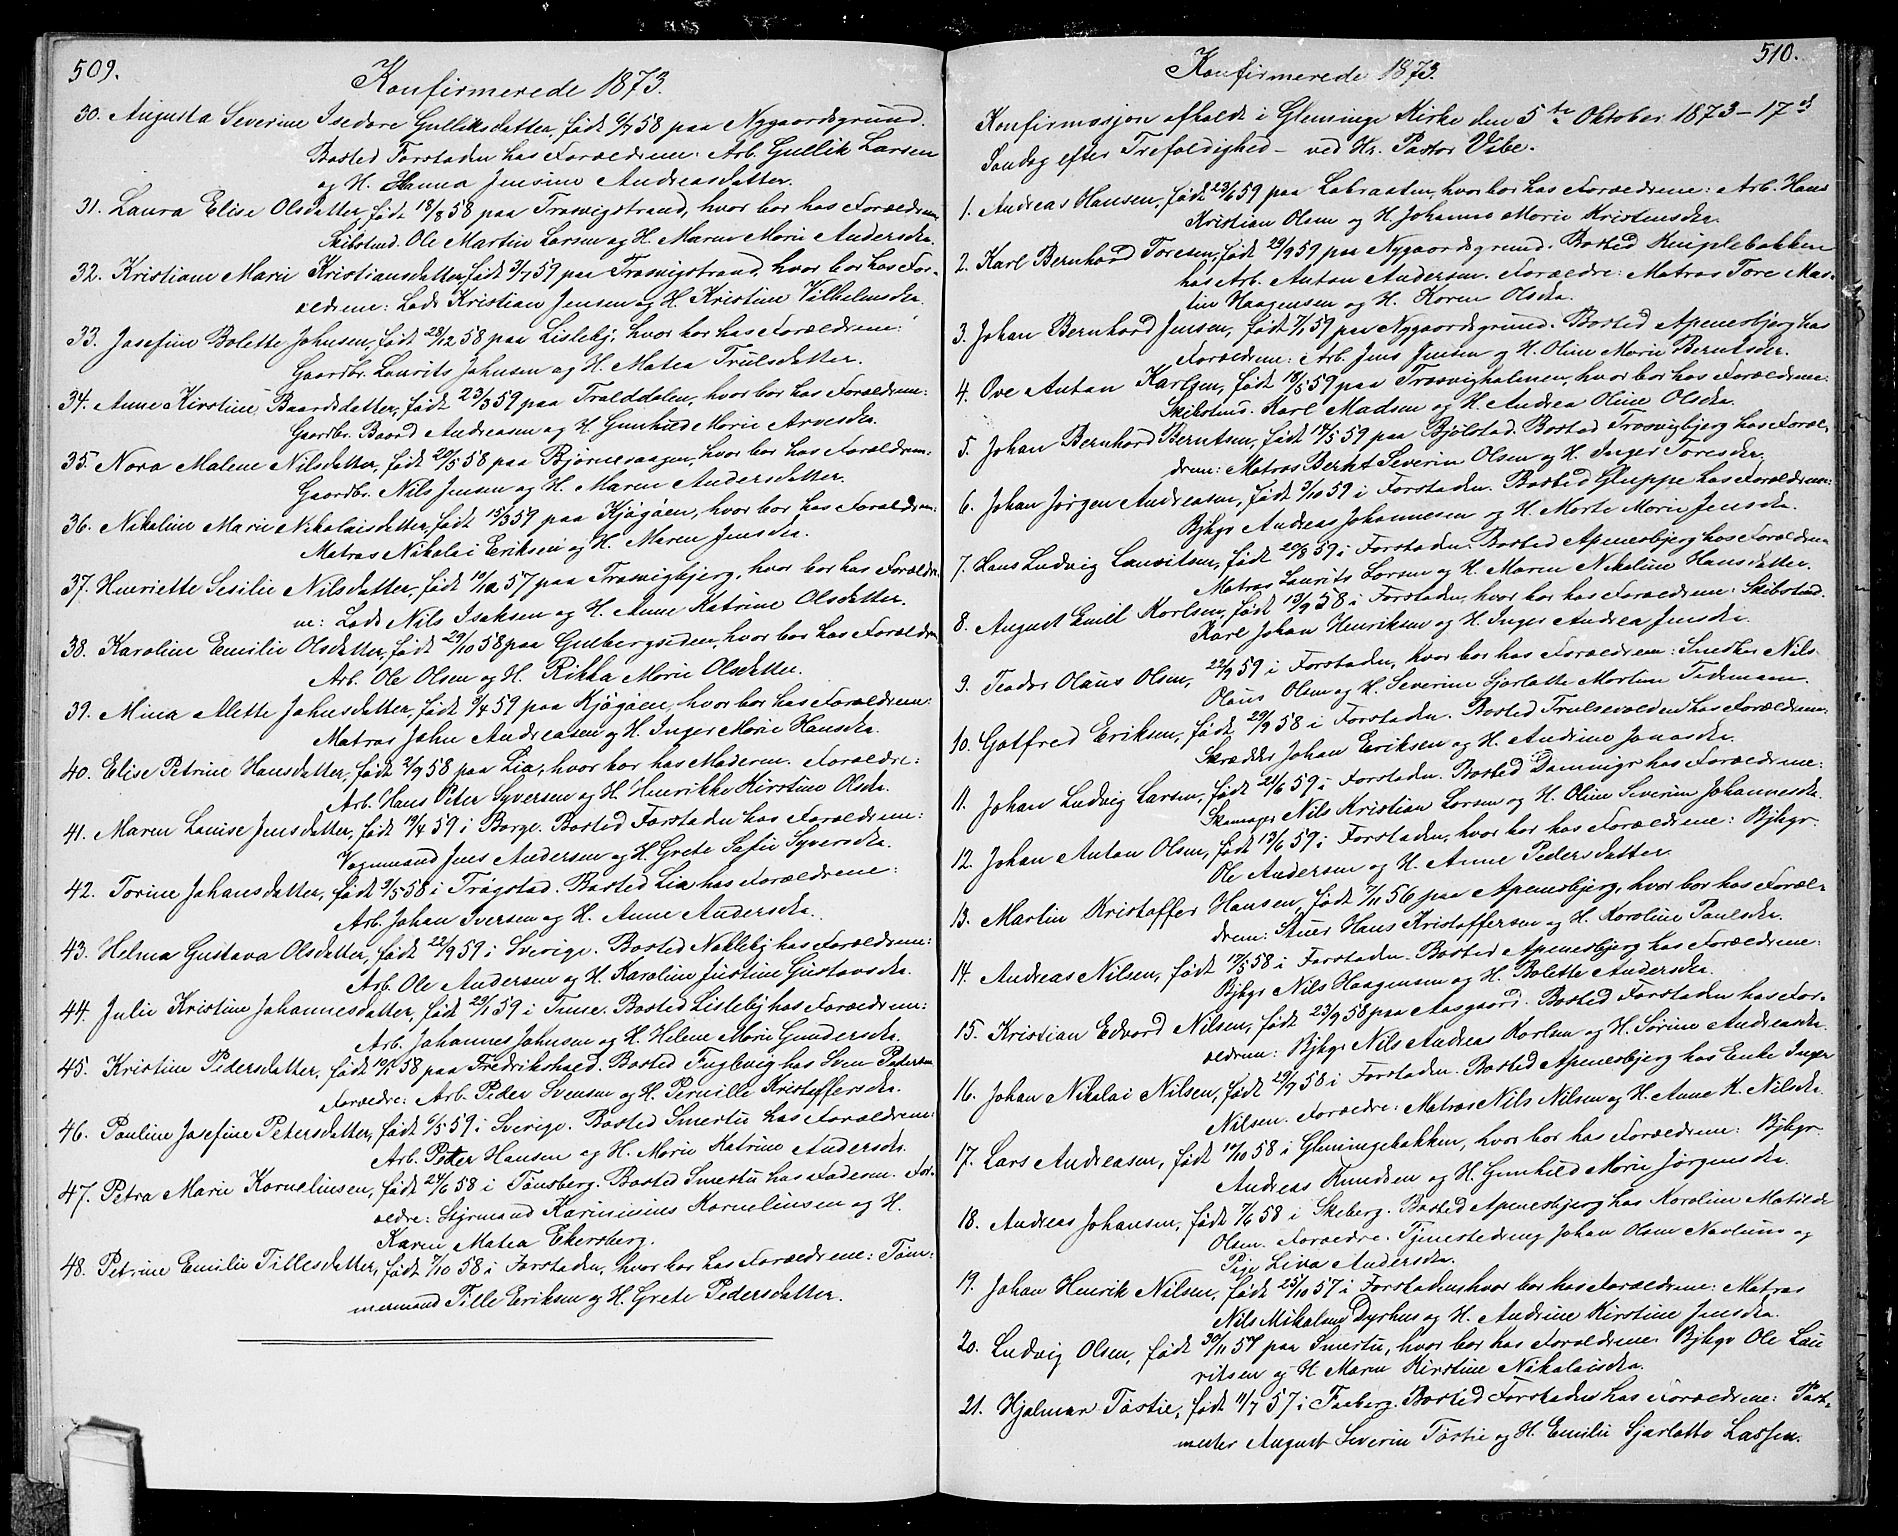 509.
Konfirmerede 1873.
30. Augusta Severine Isedore Gulliksdatter, født 6/7 58 paa Nygaardsgrund.
Bosted Forstaden hos Forældrene: Arb. Gullik Larsen
og H. Hanna Jensine Andreasdatter.
31. Laura Elise Olsdatter, født 18/8 58 paa Trosvigstrand, hvor bor hos Forældrene
Skibstmd. Ole Martin Larsen og H. Maren Marie Andersdtr.
32. Kristiane Marie Kristiansdatter, født 3/7 59 paa Trosvigstrand, hvor bor hos For-
ældrene: Lods Kristian Jensen og H. Kristine Vilhelmsdtr.
33. Josefine Bolette Johnsen, født 28/12 58 paa Lisleby, hvor bor hos Forældrene:
Gaardbr. Laurits Johnsen og H. Matea Trulsdatter.
34. Anne Kirstine Baardsdatter, født 23/3 59 paa Tralddalen, hvor bor hos Forældrene:
Gaardbr. Baard Andreasen og H. Gunhild Marie Arvesdtr.
35. Nora Malene Nilsdatter, født 29/5 58 paa Bjørnevaagen, hvor bor hos Forældrene:
Gaardbr. Nils Jensen og H. Maren Andersdatter.
36. Nikoline Marie Nikolaisdatter, født 15/3 59 paa Kjøgøen, hvor bor hos Forældrene:
Matros Nikolai Eriksen og H. Maren Jensdtr.
37. Henriette Sesilie Nilsdatter, født 19/12 57 paa Trosvigbjerg, hvor bor hos Forældre-
ne: Lods Nils Isaksen og H. Anne Katrine Olsdatter.
38. Karoline Emilie Olsdatter, født 29/10 58 paa Gulbergsiden, hvor bor hos Forældrene
Arb. Ole Olsen og H. Rikka Marie Olsdatter.
39. Mina Alette Johnsdatter, født 9/4 59 paa Kjøgøen, hvor bor hos Forældrene:
Matros John Andreasen og H. Inger Marie Hansdtr.
40. Elise Petrine Hansdatter, født 2/9 58 paa Lia, hvor bor hos Moderen. Forældre:
Arb. Hans Peter Syversen og H. Henrikke Kirstine Olsdtr.
41. Maren Louise Jensdatter, født 19/4 59 i Borge. Bosted Forstaden hos Forældrene:
Vognmand Jens Andersen og H. Grete Sofie Syversdtr.
42. Torine Johansdatter, født 9/5 58 i Trøgstad. Bosted Lia hos Forældrene:
Arb. Johan Iversen og H. Anne Andersdtr.
43. Helma Gustava Olsdatter, født 22/9 59 i Sverige. Bosted Nokleby hos Forældrene:
Arb. Ole Andersen og H. Karoline Justine Gustavsdtr.
44. Julie Kristine Johannesdatter, født 29/1 59 i Tune. Bosted Lisleby hos Forældrene:
Arb. Johannes Johnsen og H. Helene Marie Gundersdtr.
45. Kristine Pedersdatter, født 58 paa Fredrikshald. Bosted Fuglevig hos Sven Pedersen
Forældre: Arb. Peder Svensen og H. Pernille Kristoffersdtr.
46. Pauline Josefine Petersdatter, født 6/5 59 i Sverige. Bosted Smertu hos Forældrene:
Arb. Peter Hansen og H. Marie Katrine Andersdtr.
47. Petra Marie Kornelinsen, født 24/6 58 i Tønsberg. Bosted Smertu hos Faderen. For-
ældre: Styrmand Karinius Kornelinsen og H.
Karen Matea Ekersberg.
48. Petrine Emilie Tillesdatter, født 7/10 58 i Forstaden, hvor bor hos Forældrene: Tøm-
mermand Tille Eriksen og H. Grete Pedersdatter.
510.
Konfirmerede 1873.
Konfirmasjon afholdt i Glemminge Kirke den 5te Oktober 1873 – 17de
Søndag efter Trefoldighed – ved Hr. Pastor Vibe.
1. Andreas Hansen, født 23/6 59 paa Labraaten, hvor bor hos Forældrene: Arb. Hans
Kristian Olsen og H. Johanne Marie Kristensdtr.
2. Karl Bernhard Toresen, født 29/9 59 paa Nygaardsgrund. Bosted Kniplebakken
hos Arb. Anton Andersen. Forældre: Matros Tore Mar-
tin Haagensen og H. Karen Olsdtr.
3. Johan Bernhard Jensen, født 7/1 59 paa Nygaardsgrund. Bosted Apenesbjerg hos
Forældrene: Arb. Jens Jensen og H. Oline Marie Berntsdtr.
4. Ove Anton Karlsen, født 18/8 59 paa Trosvigholmen, hvor bor hos Forældrene:
Skibstmd. Karl Madsen og H. Andrea Oline Olsdtr.
5. Johan Bernhard Berntsen, født 14/5 59 paa Bjølstad. Bosted Trosvigbjerg hos Foræl-
drene: Matros Bernt Severin Olsen og H. Inger Toresdtr.
6. Johan Jørgen Andreasen, født 3/10 59 i Forstaden. Bosted Gluppe hos Forældrene:
Bjhgr Andreas Johannesen og H. Marte Marie Jensdtr.
7. Hans Ludvig Lauritsen, født 20/8 59 i Forstaden. Bosted Apenesbjerg hos Forældrene
Matros Laurits Larsen og H. Maren Nikoline Hansdatter.
8. August Emil Karlsen, født 13/9 58 i Forstaden, hvor bor hos Forældrene: Skibstmd.
Karl Johan Henriksen og H. Inger Andrea Jensdtr.
9. Teodor Olaus Olsen, 22/9 59 i Forstaden, hvor bor hos Forældrene: Snedker Nils
Olaus Olsen og H. Severine Sjarlotte Mortine Tidemann.
10. Gotfred Eriksen, født 29/9 58 i Forstaden. Bosted Trulsevolden hos Forældrene:
Skrædder Johan Eriksen og H. Andrine Jonasdtr.
11. Johan Ludvig Larsen, født 21/6 59 i Forstaden. Bosted Damvigr hos Forældrene:
Skomager Nils Kristian Larsen og H. Oline Severine Johannesdtr.
12. Johan Anton Olsen, født 13/6 59 i Forstaden, hvor bor hos Forældrene: Bjhgr.
Ole Andersen og H. Anne Pedersdatter.
13. Martin Kristoffer Hansen, født 7/11 56 paa Apenesbjerg, hvor bor hos Foræl-
drene: Stuer Hans Kristoffersen og H. Karoline Paulsdtr.
14. Andreas Nilsen, født 17/5 58 i Forstaden. Bosted Apenesbjerg hos Forældrene:
Bjhgr Nils Haagensen og H. Bolette Andersdtr.
15. Kristian Edvard Nilsen, født 23/9 58 paa Aasgaard. Bosted Forstaden hos For-
ældrene: Bjhgr Nils Andreas Karlsen og H. Sørine Andreasdtr.
16. Johan Nikolai Nilsen, født 29/7 58 i Forstaden. Bosted Apenesbjerg hos Enke Inger
Nilsen. Forældre: Matros Nils Nilsen og H. Anne K. Nilsdtr.
17. Lars Andreasen, født 17/10 58 i Glemmingebakken, hvor bor hos Forældrene: Bjhgr
Andreas Knudsen og H. Gunhild Marie Jørgensdtr.
18. Andreas Johansen, født 7/6 58 i Skeberg. Bosted Apenesbjerg hos Karoline Matilde
Olsen. Forældre: Tjenestedreng Johan Olsen Navlus og
Pige Liva Andersdtr.
19. Johan Henrik Nilsen, født 25/10 57 i Forstaden hvor bor hos Forældrene: Matros
Nils Mikalsen Dyrhus og H. Andrine Kirstine Jensdtr.
20. Ludvig Olsen, født 30/11 57 paa Smertu, hvor bor hos Forældrene. Bjhgr Ole Lau-
ritsen og H. Maren Kirstine Nikolaisdtr.
21. Hjalmar Tostie, født 11/7 57 i Faaberg. Bosted Forstaden hos Forældrene: Post-
mester August Severin Tostie og H. Emilie Sjarlotte Lassen.